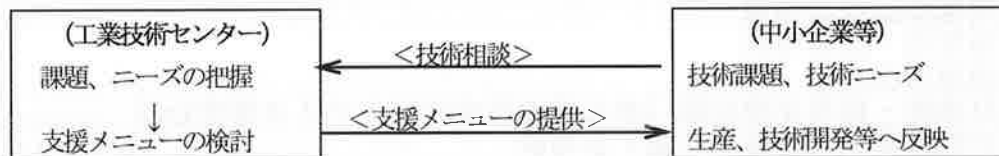 (工業技術センター)
課題、ニーズの把握
↓
支援メニューの検討
<技術相談>
<支援メニューの提供>
(中小企業等)
技術課題、技術ニーズ
生産、技術開発等へ反映